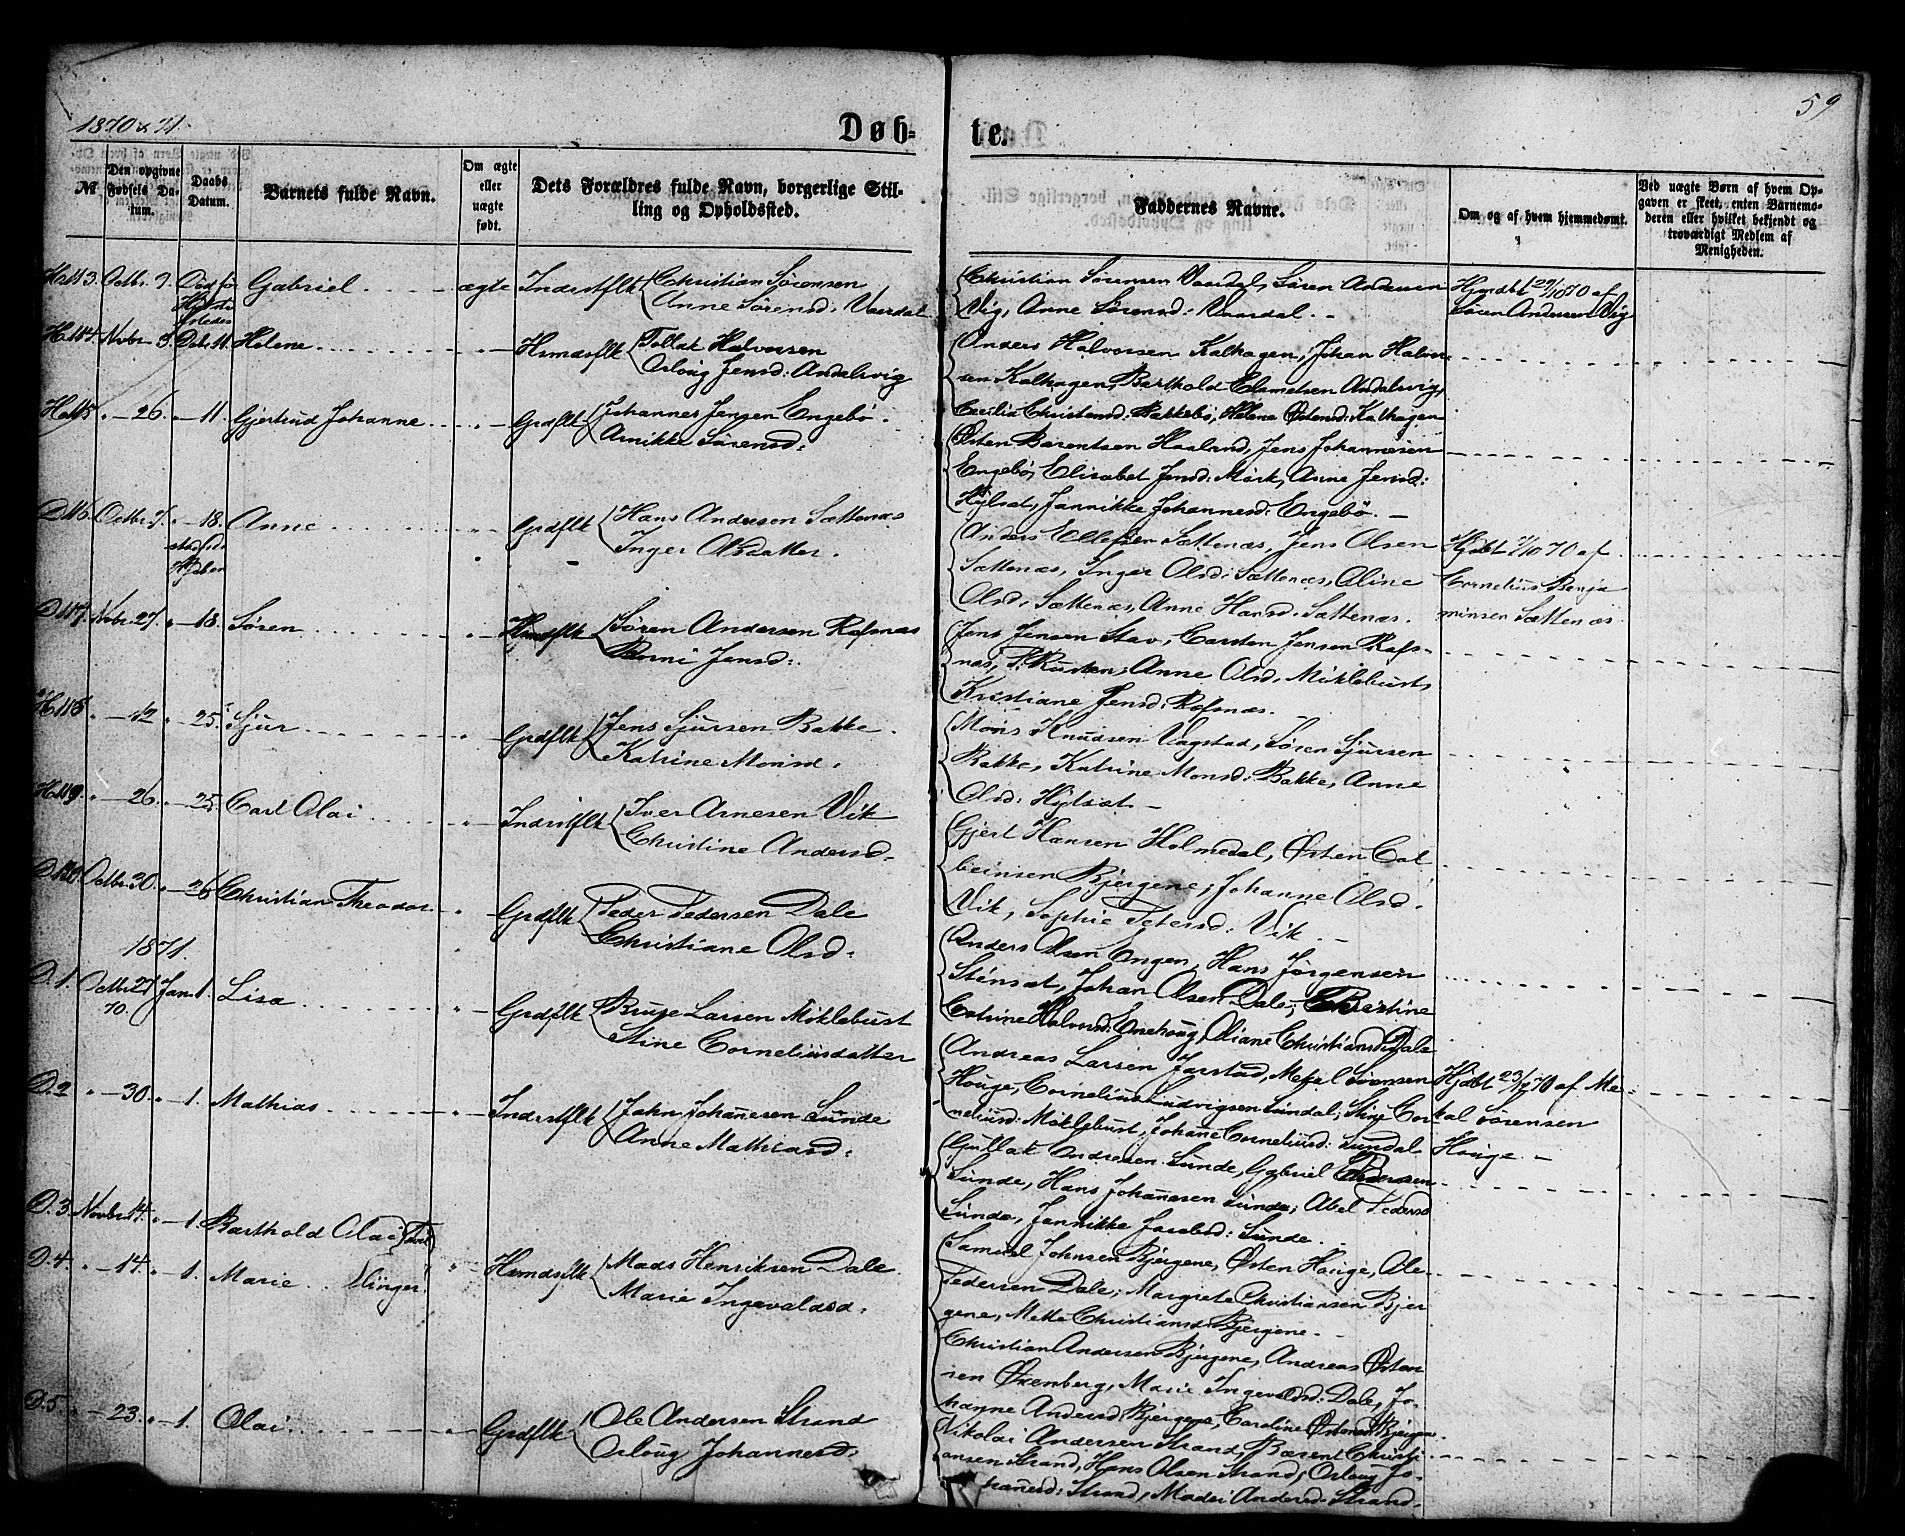 1870 & 71.
59
Døb-
te.
№
Den opgivne Fødsels Datum.
Daabs Datum.
Barnets fulde Navn.
Om ægte eller uægte født.
Dets Forældres fulde Navn, borgerlige Stilling og Opholdssted.
Faddernes Navne.
Om og af hvem hjemmedømt.
Ved uægte Børn af hvem Opgaven er skeet, enten Barnemoderen eller hvilket bekjendt og troværdigt Medlem af Menigheden.
H. 113. Octbr. 9. Død før Gabriel ægte Indrstflk Christian Sørensen
Anne Sørensd: Vaardal
Christian Sørensen Vaardal, Søren Andersen
Vig, Anne Sørensd: Vaardal. -
Hjmdbt 29/10 70 af
Søren Andersen Vig
H. 114. Novbr. 3. Dcbr. 11. Helene Hsmdsflk Tollak Halvorsen
Orloug Jensd: Andalsvig
Anders Halvorsen Kalhagen, Johan Halvor-
sen Kalhagen, Barthold Andalsvig,
Cecilia Christensd: Bakkebø, Helene Østensd: Kalhagen
H. 115. " - 26. " - 11. Gjertrud Johanne " - Grdflk Johannes Jensen Engebø.
Annikke Sørensd:
Østen Barentsen Haaland, Jens Johannesen
Engebø, Elisabet Jensd: Mörk, Anne Jensd:
Hylsat, Jannikke Johannesd: Engebø. -
D. 116. Octbr. 7. " - 18. Anne " Grdflk Hans Andersen Sættenæs
Inger Olsdatter.
Anders Ellefsen Sættenæs, Jens Olsen
Sættenæs, Inger Olsd: Sættenæs, Oline
Olsd. Sættenæs, Anne Hansd. Sættenæs.
Hjdbt 7/10 70 af
Cornelius Benja
minsen Sættenæs
D. 117. Novbr. 27. " - 18. Søren " - Hsmdflk Søren Andersen Rafsnæs
Berni Jensd:
Jens Jensen Stav, Carsten Jensen Rafs-
næs, Anne Olsd. Miklebust,
Kristiane Jensd: Rafsnæs. -
H. 118 " - 12 " - 25. Sjur " - Grdflk Jens Sjursen Bakke.
Katrine Monsd.
Mons Knudsen Vagstad, Søren Sjursen
Bakke, Katrine Monsd: Bakke, Anne
Olsd: Hylsat -
H. 119. " - 26. " - 25. Carl Olai " - Indrstflk Iver Arnesen Vik
Christine Andersd.
Gjert Hansen Holmedal, Østen Col
beinsen Bjergene, Johanne Olsd.
Vik, Sophie Petersd. Vik. -
D. 120 Octbr. 30. " - 26 Christian Theodor " Grdflk Peder Pedersen Dale
Christiane Olsd.
Anders Olsen Engen, Hans Jørgensen
Stensat, Johan Olsen Dale, Christine
Catrine Halvorsd: Oliane Christiansd Dale
1871.
D. 1. Octbr. 27 Jan. 1. Lisa " - Grdflk Brune Larsen Miklebust
70. Stine Corneliusdatter
Andreas Larsen Jarstad, Mekel Sørensen
Houge, Cornelius Ludvigsen Sundal, Stine Cor
neliusd: Miklebust, Johane Corneliusd: Sundal
Hjdbt 23/12 70 af Me-
kal Sörensen
Houge. -
D. 2 " - 30. " - 1. Mathias " - Indrstflk John Johanesen Sunde
Anne Mathiasd.
Gullak Andresen Sunde, Gabriel Andersen
Sunde, Hans Johanesen Sunde, Abel Pedersd
Sunde, Jannikke Jacobsd: Sunde.
D. 3. Novbr. 14. " - 1. Barthold Olai
D. 4. " - 14. " - 1. Marie. Hsmdsflk Mads Henriksen Dale
Marie Ingevaldsd.
Samuel Johnsen Bjergene, Østen Houge, Ole
Pedersen Dale, Margrete Christiansen Bjer
gene, Mette Christiansd. Bjergene. -
Christian Andersen Bjergene, Andreas Østen
sen Oxenberg, Marie Ingevaldsd: Dale, Jo-
hanne Andersd: Bjergene, Caroline Østensd Bjergene.
D. 5. " - 23. " - 1. Olai " - Grdflk Ole Andersen Strand
Orloug Johannesd.
Nikolai Andersen Strand, Barent Christi-
ansen Strand, Hans Olsen Strand, Orloug Jo-
hanesd: Strand, Madsi Andersd. Strand.